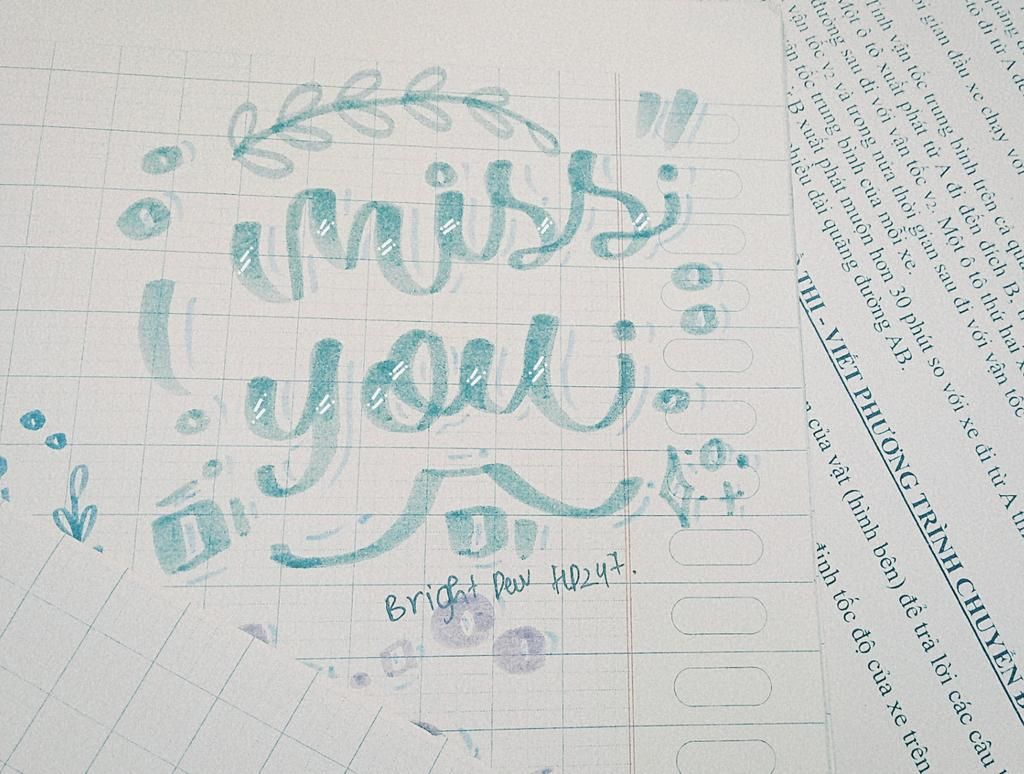 miss
you
Bright Dew HD247.
gian đầu xe chạy với
Tính vận tốc trung bình trên cả
Một ô tô xuất phát từ A đi đến đích B,
đường sau đi với vận tốc v2. Một ô tô thứ hai
vận tốc v2 và trong nửa thời gian sau đi với vận tốc
tốc trung bình của mỗi xe.
B xuất phát muộn hơn 30 phút so với xe đi từ A
chiều dài quãng đường AB.
THỊ - VIẾT PHƯƠNG TRÌNH CHUYỂN
của vật (hình bên) để trả lời các câu
định tốc độ của xe trên